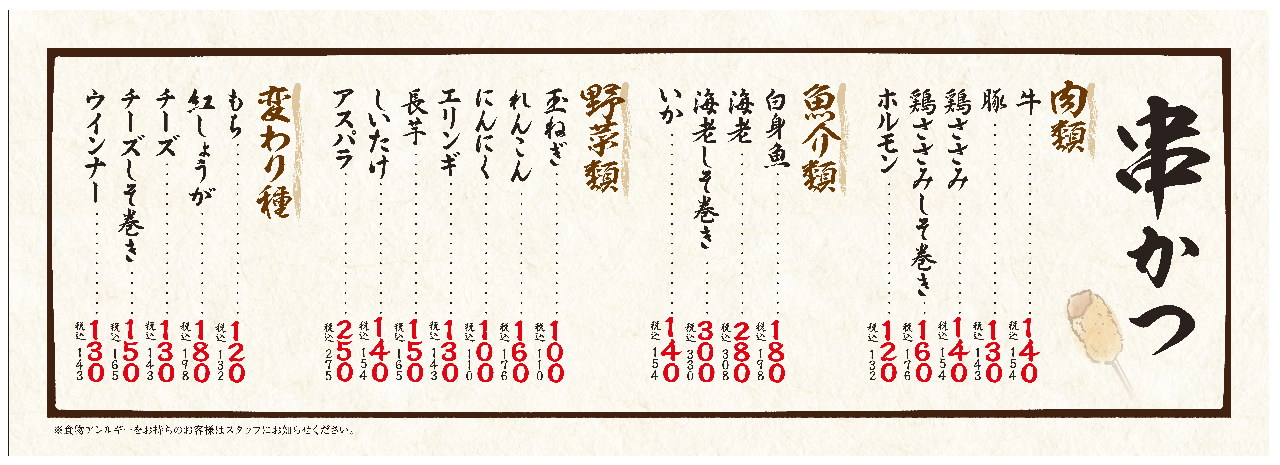 串かつ
肉類
牛 140 税込154
豚 130 税込143
鶏ささみ 140 税込154
鶏ささみしそ巻き 160 税込176
ホルモン 120 税込132
魚介類
白身魚 180 税込198
海老 280 税込308
海老しそ巻き 300 税込330
いか 140 税込154
野菜類
玉ねぎ 100 税込110
れんこん 160 税込176
にんにく 100 税込110
エリンギ 130 税込143
長芋 150 税込165
しいたけ 140 税込154
アスパラ 250 税込275
変わり種
もち 120 税込132
紅しょうが 180 税込198
チーズ 130 税込143
チーズしそ巻き 150 税込165
ウインナー 130 税込143
※食物アレルギーをお持ちのお客様はスタッフにお知らせください。